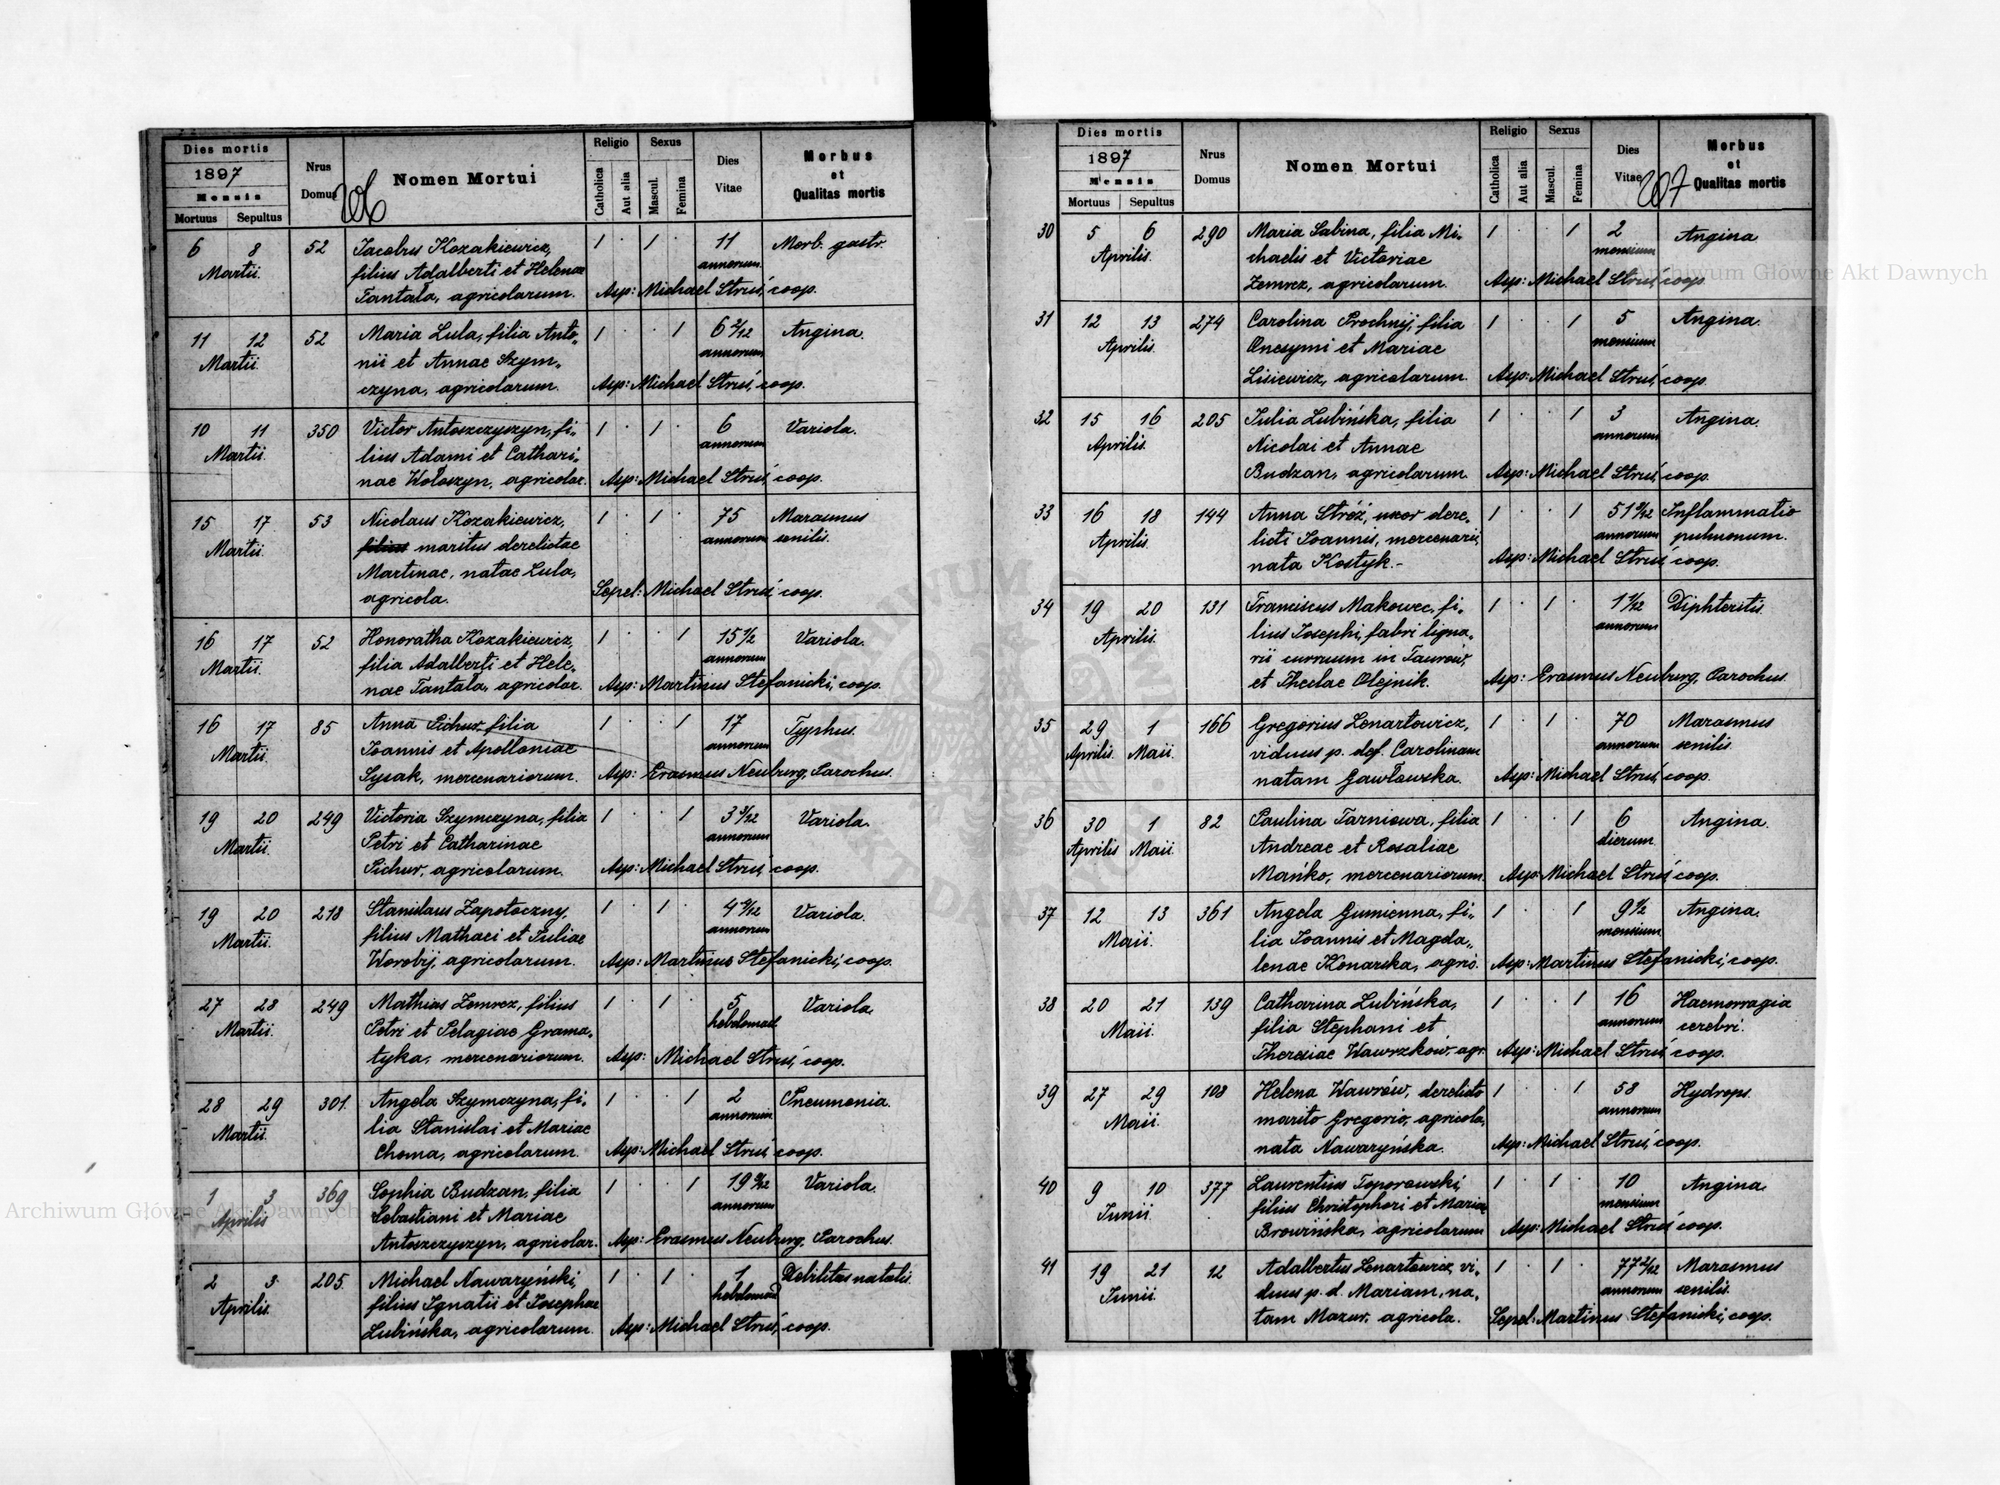 Dies mortis
1897
Mensis
Mortuus Sepultus
Nrus Domus
206
Nomen Mortui
Religio
Catholica
Aut alia
Sexus
Mascul.
Femina
Dies Vitae
Morbus et Qualitas mortis
6 8 52 Jacobus Kozakiewicz, 1 · 1 · 11 Morb. gastr.
Martii. filius Adalberti et Helenae annorum.
Tantała, agricolarum. Asp: Michael Struś, coop.
11 12 52 Maria Lula, filia Anto- 1 · · 1 6 2/12 Angina.
Martii. nii et Annae Szym- annorum
czyna, agricolarum. Asp: Michael Struś, coop.
10 11 350 Victor Antoszczyszyn, fi- 1 · 1 · 6 Variola.
Martii. lius Adami et Cathari- annorum
nae Wołoszyn, agricolar. Asp: Michael Struś, coop.
15 17 53 Nicolaus Kozakiewicz, 1 · 1 · 75 Marasmus
Martii. filius maritus derelictae annorum senilis.
Martinae, natae Lula,
agricola. Sepel: Michael Struś coop.
16 17 52 Honoratha Kozakiewicz, 1 · · 1 15 1/2 Variola.
Martii. filia Adalberti et Hele- annorum
nae Tantała, agricolar. Asp: Martinus Stefanicki, coop.
16 17 85 Anna Pichur, filia 1 · · 1 17 Typhus.
Martii. Joannis et Apolloniae annorum
Sysak, mercenariorum. Asp: Erasmus Neuburg, Parochus.
19 20 249 Victoria Szymczyna, filia 1 · · 1 3 Variola.
Martii. Petri et Catharinae annorum
Pichur, agricolarum. Asp: Michael Struś, coop.
19 20 218 Stanislaus Zapotoczny, 1 · 1 · 4 Variola.
Martii. filius Mathaei et Juliae annorum
Worobij, agricolarum. Asp: Martinus Stefanicki, coop.
27 28 249 Mathias Zemrez, filius 1 · 1 · 5 Variola.
Martii. Petri et Pelagiae Grama- hebdomad.
tyka, mercenariorum. Asp: Michael Struś, coop.
28 29 301. Angela Szymczyna, fi- 1 · · 1 2 Pneumonia.
Martii. lia Stanislai et Mariae annorum
Choma, agricolarum. Asp: Michael Struś, coop.
1 3 369 Sophia Budzan, filia 1 · · 1 19 Variola.
Aprilis Sebastiani et Mariae annorum
Antoszczyszyn, agricolar. Asp: Erasmus Neuburg, Parochus.
2 3 205. Michael Nawaryński, 1 · 1 · 1 Debilitas natalis.
Aprilis. filius Ignatii et Josephae hebdomad
Lubińska, agricolarum. Asp: Michael Struś, coop.
Dies mortis
1897
Mensis
Mortuus Sepultus
Nrus Domus
Nomen Mortui
Religio
Catholica
Aut alia
Sexus
Mascul.
Femina
Dies Vitae
207
Morbus et Qualitas mortis
30 5 6 290 Maria Sabina, filia Mi- 1 · · 1 2 Angina
Aprilis. chaelis et Victoriae mensium
Zemrez, agricolarum. Asp: Michael Struś coop.
31 12 13 274 Carolina Prochnij, filia 1 · · 1 5 Angina.
Aprilis. Onesymi et Mariae mensium
Lisiewicz, agricolarum. Asp: Michael Struś, coop.
32 15 16 205 Julia Lubińska, filia 1 · · 1 3 Angina.
Aprilis. Nicolai et Annae annorum
Budzan, agricolarum. Asp: Michael Struś, coop.
33 16 18 144 Anna Stróż, uxor dere- 1 · · 1 51 Inflammatio
Aprilis. licti Joannis, mercenarii, annorum pulmonum.
nata Kostyk.- Asp: Michael Struś coop.
34 19 20 131 Franciscus Makowec, fi- 1 · 1 · 1 Diphteritis.
Aprilis. lius Josephi, fabri ligna- annorum
rii curruum in Taurów,
et Theclae Olejnik. Asp: Erasmus Neuburg, Parochus.
35 29 1 166 Gregorius Lenartowicz, 1 · 1 · 70 Marasmus
Aprilis. Maii. viduus p. def. Carolinam annorum senilis.
natam Gawłowska. Asp: Michael Struś, coop.
36 30 1 82 Paulina Tarniowa, filia 1 · · 1 6 Angina.
Aprilis Maii. Andreae et Rosaliae dierum.
Mańko, mercenariorum. Asp: Michael Struś, coop.
37 12 13 361 Angela Gumienna, fi- 1 · · 1 9 1/2 Angina.
Maii. lia Joannis et Magda- mensium
lenae Konarska, agric. Asp: Martinus Stefanicki, coop.
38 20 21 139 Catharina Lubińska, 1 · · 1 16 Haemorragia
Maii. filia Stephani et annorum cerebri.
Theresiae Wawrzków, agr. Asp: Michael Struś, coop.
39 27 29 108 Helena Wawrów, derelicto 1 · · 1 58 Hydrops.
Maii. marito Gregorio, agricola, annorum
nata Nawaryńska. Asp: Michael Struś, coop.
40 9 10 377 Laurentius Toporowski, 1 · 1 · 10 Angina.
Junii. filius Christophori et Mariae mensium
Browińska, agricolarum Asp: Michael Struś coop.
41 19 21 12 Adalbertus Lenartowicz, vi- 1 · 1 · 77 2/12 Marasmus
Junii. duus p. d. Mariam, na- annorum senilis.
tam Mazur, agricola. Sepel: Martinus Stefanicki, coop.
Archiwum Główne Akt Dawnych
Archiwum Główne Akt Dawnych